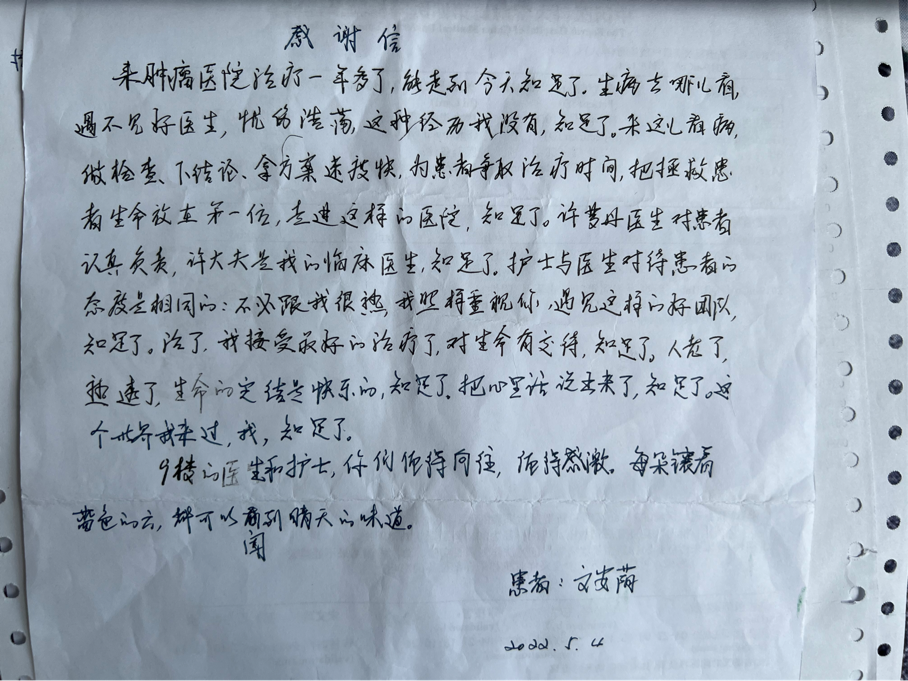 感谢信
来肿瘤医院治疗一年多了,能走到今天知足了。生病去哪儿看,
遇不见好医生,忧伤浩荡,这种经历我没有,知足了。来这儿看病,
做检查、下结论、拿方案速度快,为患者争取治疗时间,把拯救患
者生命放在第一位,走进这样的医院,知足了。许梦丹医生对患者
认真负责,许大夫是我的临床医生,知足了。护士与医生对待患者的
态度是相同的:不必跟我很熟,我照样重视你,遇见这样的好团队,
知足了。治了,我接受最好的治疗了,对生命有交待,知足了。人老了,
走了,生命的完结是快乐的,知足了。把心里话说出来了,知足了。这
个世界我来过,我,知足了。
9楼的医生和护士,你们值得向往,值得感激。每朵镶着
蓝色的云,都可以看到晴天的味道。
闻
患者:文安荫
2022.5.4